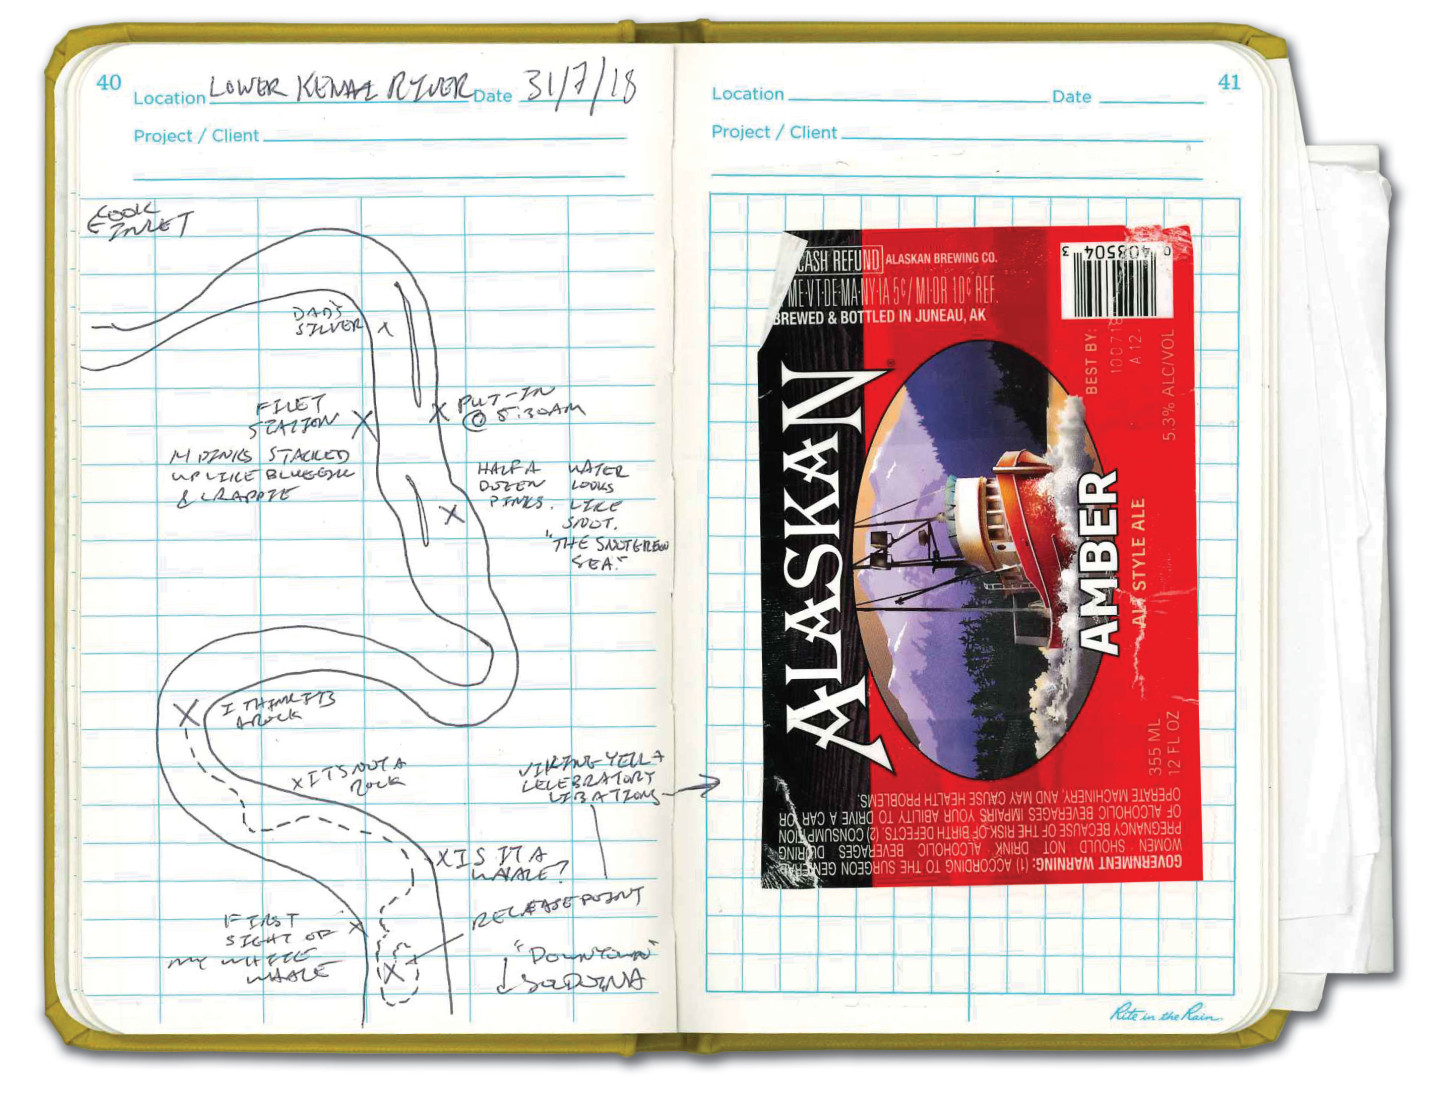 40
Location LOWER KENAI RIVER Date 31/7/18
Project / Client
COOK
INLET
DAD'S
SILVER
FILET
STATION
PUT-IN
@ 5:30AM
STACKED
UP LIKE BLUEGILL
& CRAPPIE
HALF A
DOZEN
PINKS.
WATER
LOOKS
LIKE
SNOT.
"THE
SEA."
I THINK IT'S
A ROCK
IT'S NOT A
ROCK
VIKING-YELL &
CELEBRATORY
LIBATIONS
IS IT A
WHALE?
RELEASE POINT
FIRST
SIGHT OF
MY WHITE
WHALE
"DOWNTOWN"
SOLDOTNA
41
Location Date
Project / Client
CASH REFUND ALASKAN BREWING CO.
ME·VT·DE·MA·NY·IA 5¢/MI·OR 10¢ REF.
BREWED & BOTTLED IN JUNEAU, AK
0 408504 3
BEST BY:
100718
A 12.
5.3% ALC/VOL
ALASKAN
AMBER
ALT STYLE ALE
355 ML
12 FL OZ
GOVERNMENT WARNING: (1) ACCORDING TO THE SURGEON GENERAL
WOMEN SHOULD NOT DRINK ALCOHOLIC BEVERAGES DURING
PREGNANCY BECAUSE OF THE RISK OF BIRTH DEFECTS. (2) CONSUMPTION
OF ALCOHOLIC BEVERAGES IMPAIRS YOUR ABILITY TO DRIVE A CAR OR
OPERATE MACHINERY, AND MAY CAUSE HEALTH PROBLEMS.
Rite in the Rain